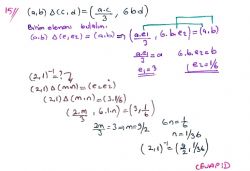 15// (a,b) Δ (c,d) = (a.c/3, 6bd)
Birim elemanı bulalım:
(a.b) Δ (e₁,e₂) = (a,b) ⇒ (a.e₁/3, 6.b.e₂) = (a,b)
a.e₁/3 = a 6.b.e₂ = b
e₁ = 3 e₂ = 1/6
(2,1)⁻¹ = ?
(2,1) Δ (m,n) = (e₁,e₂)
(2,1) Δ (m,n) = (3,1/6)
(2.m/3, 6.1.n) = (3, 1/6)
2m/3 = 3 ⇒ m = 9/2 6n = 1/6
n = 1/36
(2,1)⁻¹ = (9/2, 1/36)
CEVAP: D